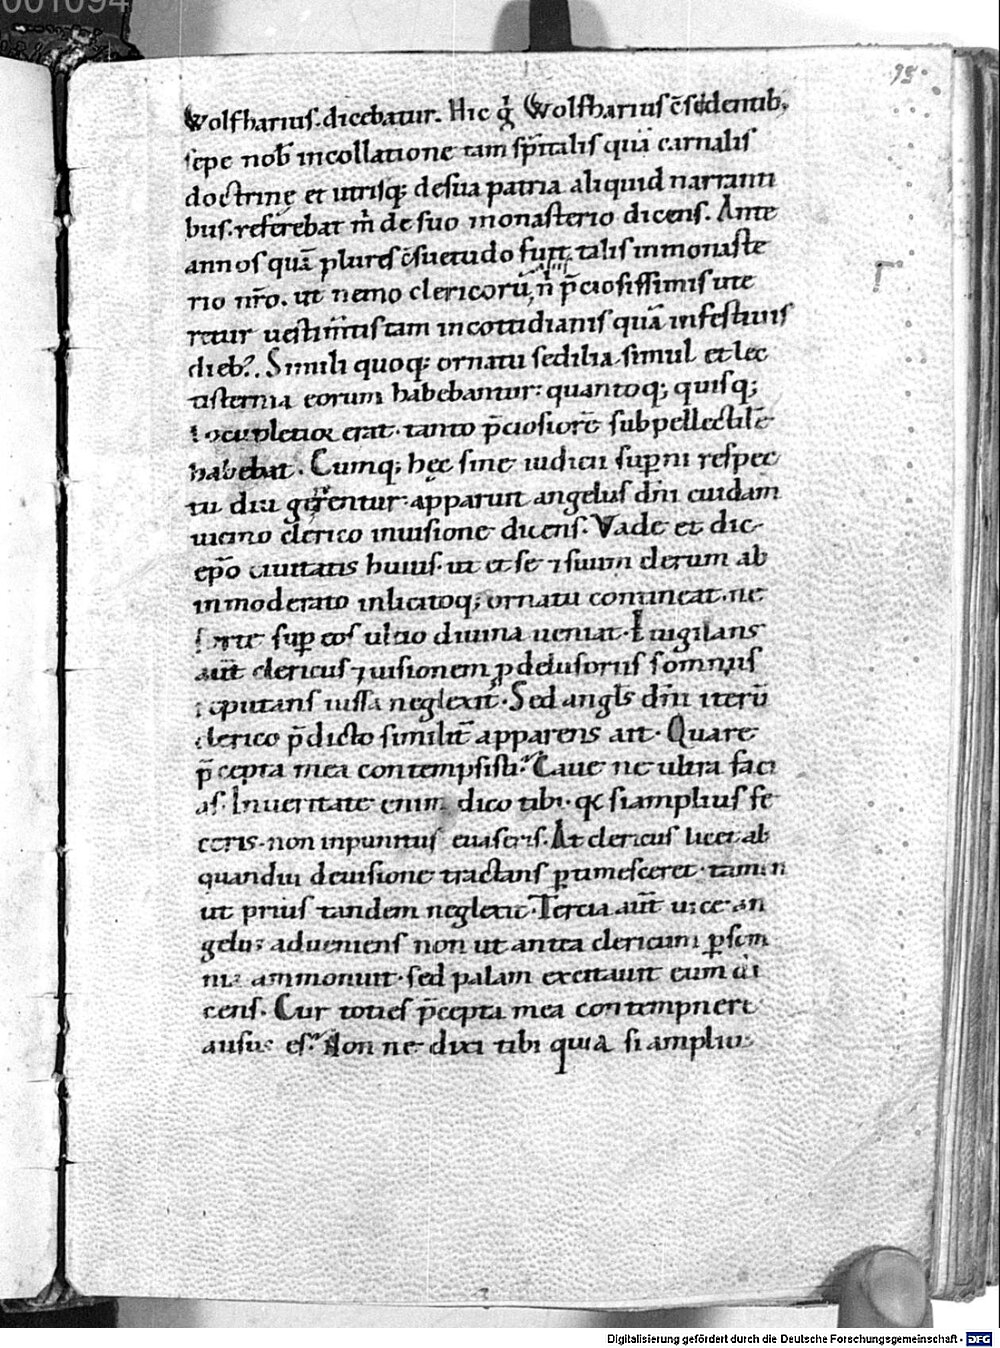 001094
95.
Wolfharius. dicebatur. Hic g̍ Wolfharius c̄sedentib;
sepe nob̄ incollatione tam sp̄italis quā carnalis
doctrinę et utrisq; desua patria aliquid narranti
bus. referebat m̍ de suo monasterio dicens. Ante
annos quā plures c̄suetudo fuit talis inmonaste
rio nr̄o. ut nemo clericorū n̄ p̄ciosissimis ute
retur uestim̄tis tam incottidianis quā infestiuis
dieb;. Simili quoq; ornatu sedilia simul et lec
tisternia eorum habebantur: quantoq; quisq;
locupletior erat. tanto p̄ciosiorē subpellectilē
habebat. Cumq; hęc sine iudicii sup̄ni respec
tu diu gererentur. apparuit angelus dn̄i cuidam
uicino clerico inuisione dicens. Vade et dic
ep̄o ciuitatis huius. ut et se ⁊ suum clerum ab
inmoderato inlicitoq; ornatu contineat. ne
forte sup̄ eos ultio diuina ueniat. Euigilans
aut̄ clericus ⁊ uisionem p̱ delusoriis somniis
reputans iussa neglexit. Sed angl̄s dn̄i iterū
clerico p̄dicto similit̄ apparens ait. Quare
p̄cepta mea contempsisti? Caue ne ultra faci
as. Inueritate enim dico tibi. qđ siamplius fe
ceris. non inpunitus euaseris. At clericus licet ab
quandiu deuisione tractans p̱timesceret. tamen
ut prius tandem neglexit. Tercia aut̄ uice an
gelus adueniens non ut antea clericum p̱ som
nia ammonuit. sed palam excitauit eum di
cens. Cur toties p̄cepta mea contempnere
ausus es? Non ne dixi tibi quia si amplius
Digitalisierung gefördert durch die Deutsche Forschungsgemeinschaft - DFG